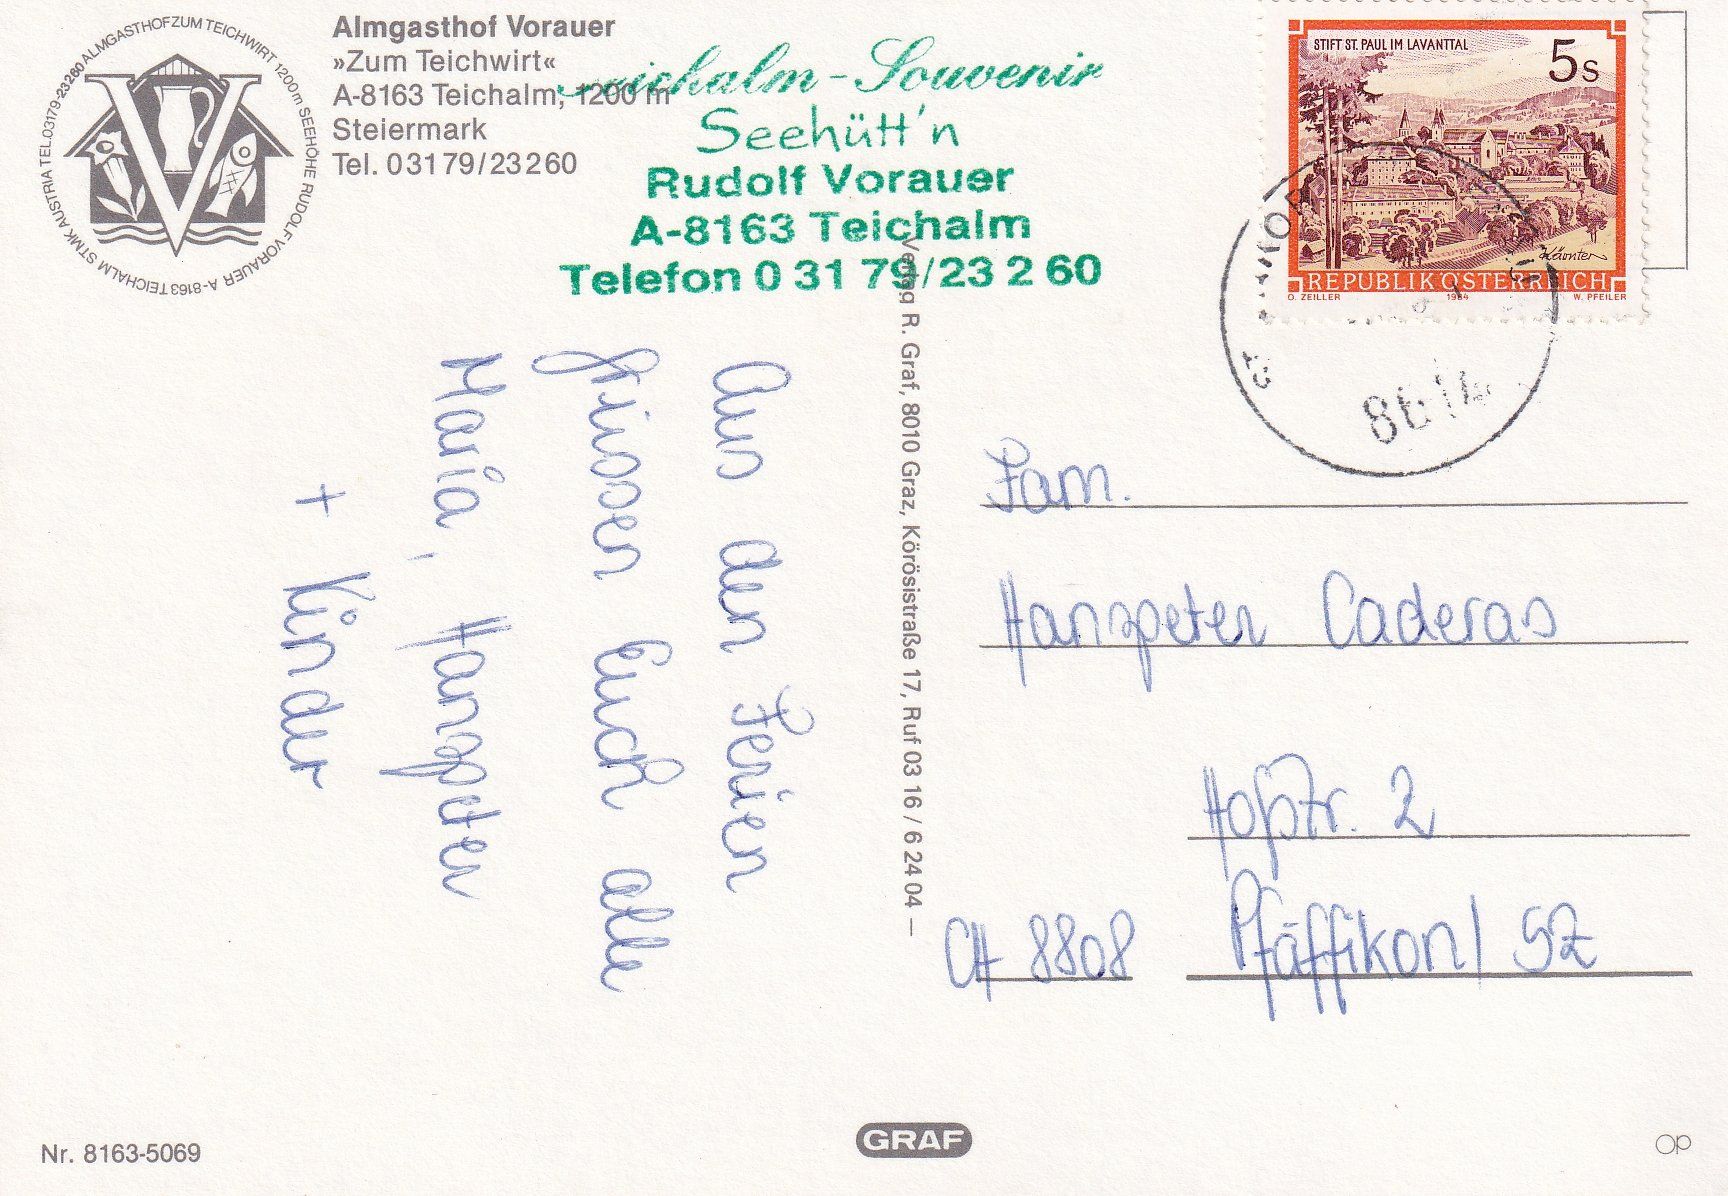 ALMGASTHOF ZUM TEICHWIRT 1200m SEEHÖHE RUDOLF VORAUER A-8163 TEICHALM STMK AUSTRIA TEL.03179-23260
Almgasthof Vorauer
»Zum Teichwirt«
A-8163 Teichalm, 1200 m
Steiermark
Tel. 03179/23260
Teichalm-Souvenir
Seehütt'n
Rudolf Vorauer
A-8163 Teichalm
Telefon 0 31 79/23 2 60
STIFT ST. PAUL IM LAVANTTAL
5s
Kärnten
REPUBLIK ÖSTERREICH
O. ZEILLER 1984 W. PFEILER
Aus den Ferien
grüssen Euch alle
Maria, Hanspeter
+ Kinder
Verlag R. Graf, 8010 Graz, Körösistraße 17, Ruf 03 16 / 6 24 04 –
Fam.
Hanspeter Caderas
Hofstr. 2
CH 8808 Pfäffikon/SZ
Nr. 8163-5069
GRAF
op